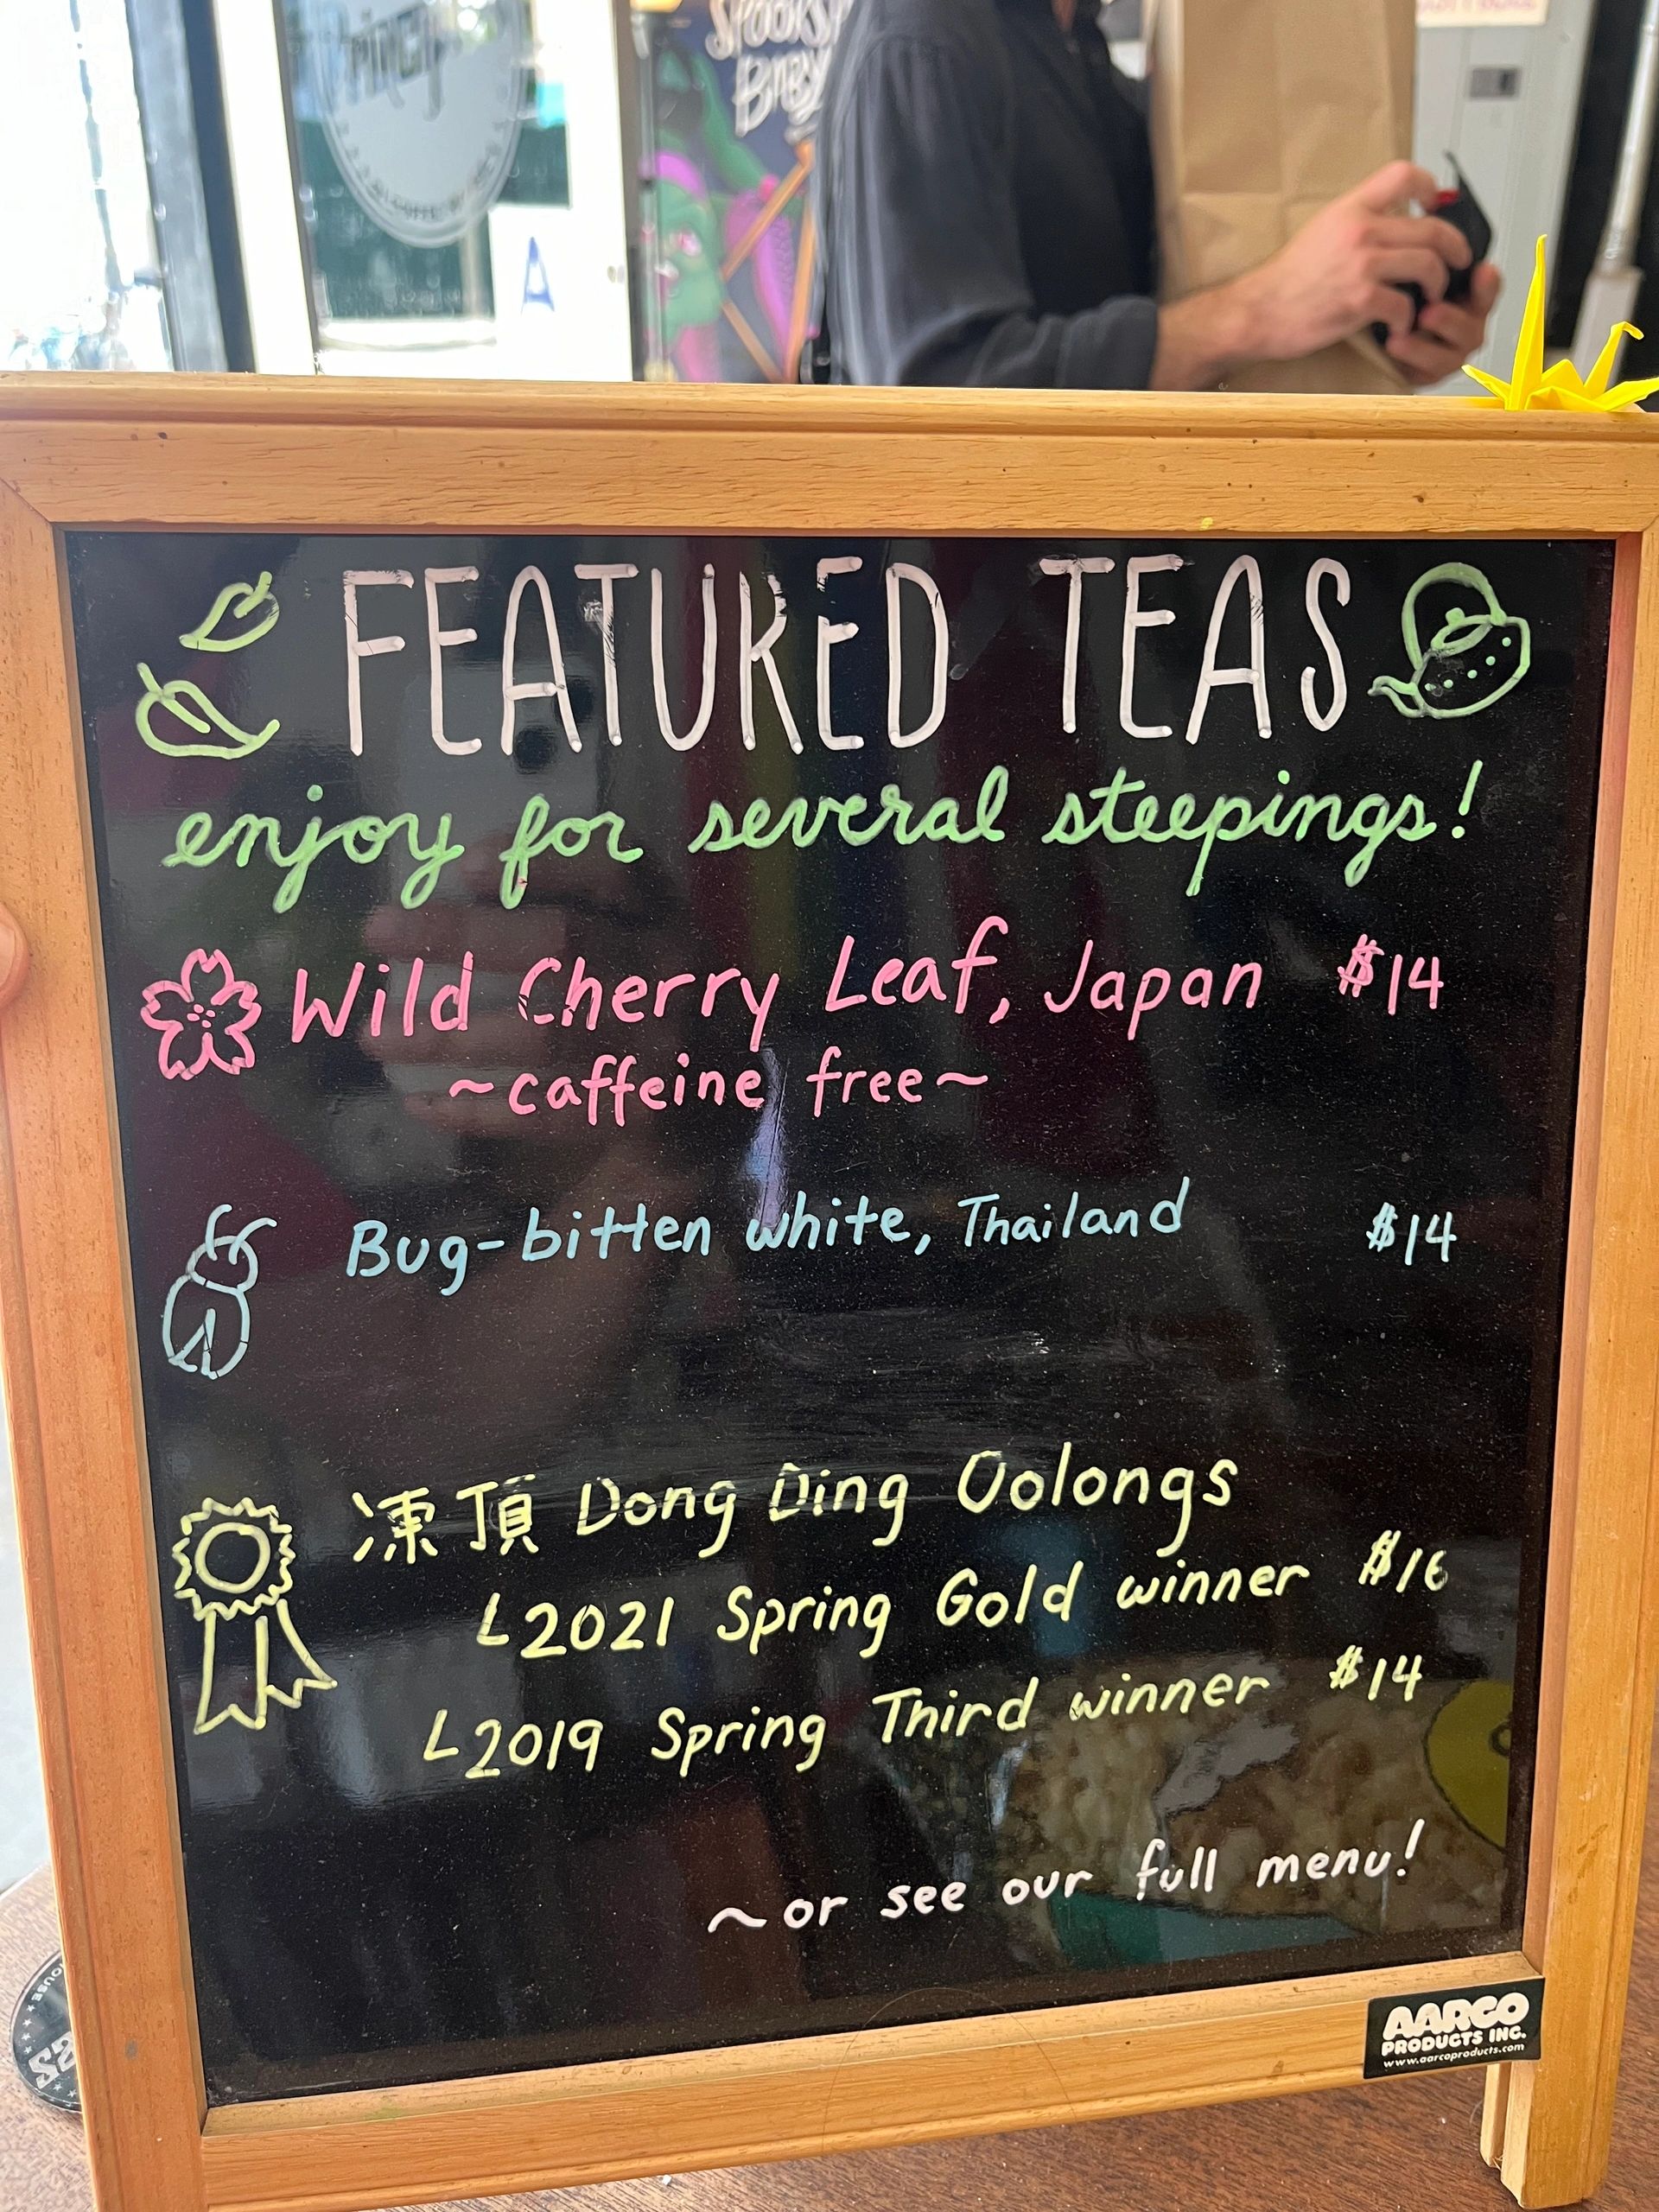 SPOOKSY
BABY
A
FEATURED TEAS
enjoy for several steepings!
Wild Cherry Leaf, Japan $14
~caffeine free~
Bug-bitten white, Thailand $14
凍頂 Dong Ding Oolongs
2021 Spring Gold winner $16
2019 Spring Third winner $14
~or see our full menu!
AARCO
PRODUCTS INC.
www.aarcoproducts.com